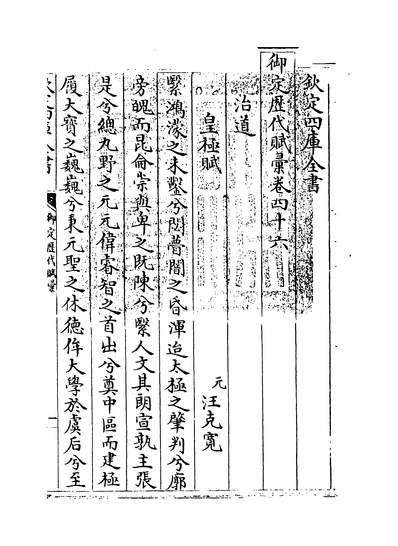 欽定四庫全書
御定歷代賦彙卷四十六
治道
皇極賦
元 汪克寬
緊鴻濛之未鑿兮悶瞢闇之昏渾迨太極之肇判兮廓
旁魄而昆侖崇與卑之既陳兮繄人文其朗宣孰主張
是兮總九野之元元偉睿智之首出兮奠中區而建極
履大寶之巍巍兮秉元聖之休徳侔大學於虞后兮至
御定歷代賦彙
一